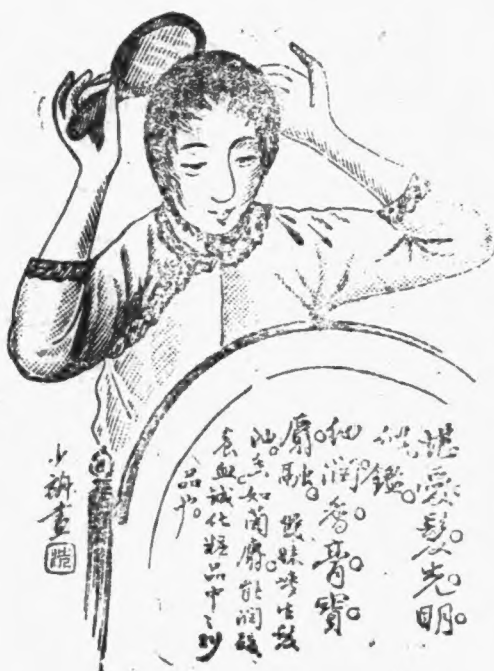 堪愛髮光明。
似鑑。
細潤香膏寶
麝融。雙妹嘜生髮
油。香如蘭麝。能潤髮
養血誠化粧品中之
品也。
少 畫